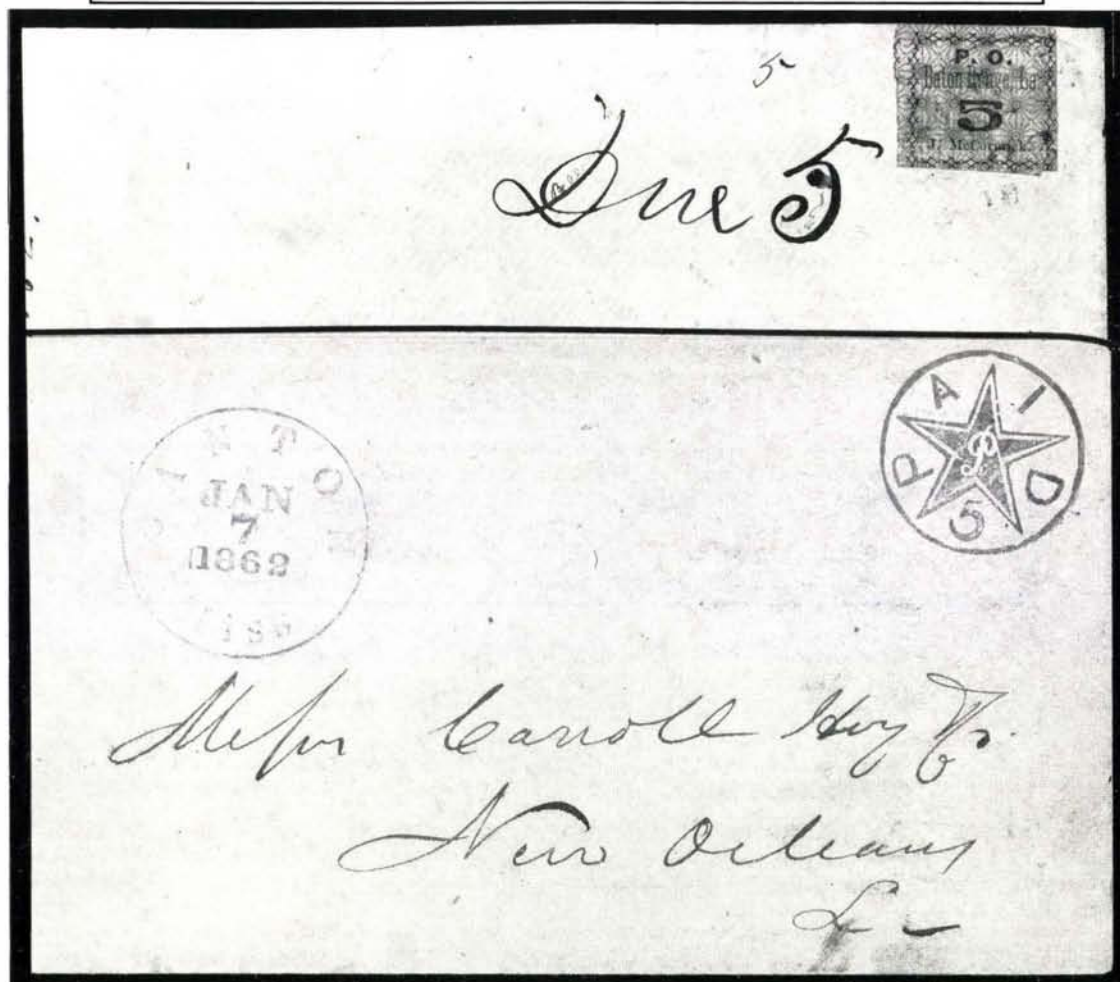 5
P. O.
Baton Rouge, La
5
J. McCormick
Due 5
PAID
P
5
JAN
7
1862
Miss
Messr Carroll Hoy & Co.
New Orleans
La